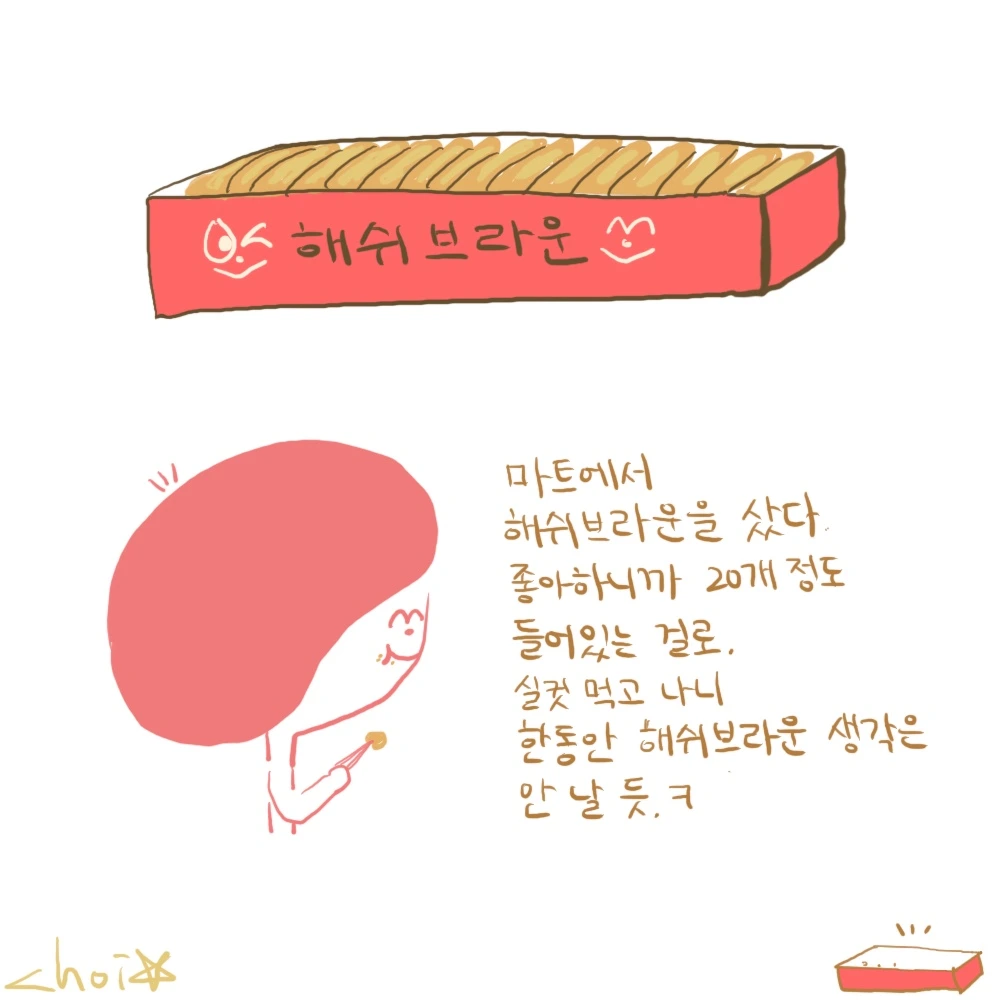 해쉬브라운
마트에서
해쉬브라운을 샀다.
좋아하니까 20개 정도
들어있는 걸로.
실컷 먹고 나니
한동안 해쉬브라운 생각은
안 날 듯.ㅋ
choi